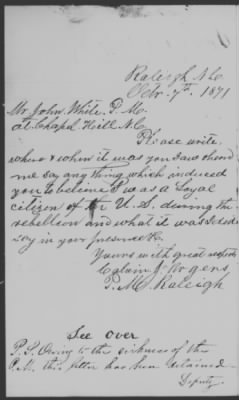 Raleigh N.C.
Octr. 7th. 1871
Mr John White P. M.
at Chapel Hill N.C.
Please write
where & when it was you saw
me say any thing which induced
you to believe I was a Loyal
citizen of the U.S. during the
rebelleon and what it was I
say in your presence &c.
Yours with great respect
J. Rogers
P. M. Raleigh
See over
P.S. Owing to the sickness of the
P.M. this letter has been
Deputy